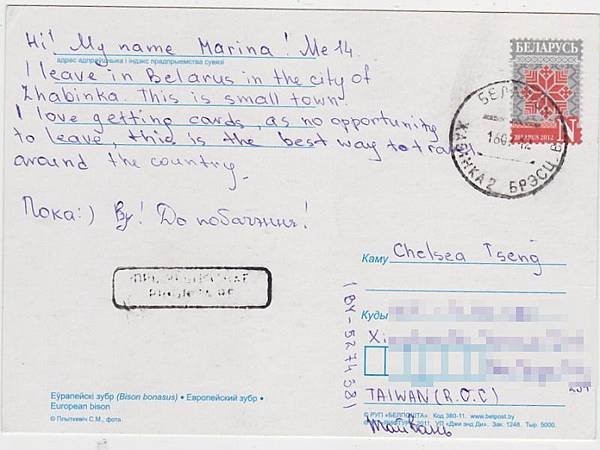 БЕЛАРУСЬ
BELARUS 2012
N
Hi! My name Marina! Me 14.
адрас адпраўшчыка і індэкс прадпрыемства сувязі
I leave in Belarus in the city of
Zhabinka. This is small town.
I love getting cards, as no opportunity
to leave, this is the best way to travel
around the country.
Пока:) By! До побачэння!
Каму Chelsea Tseng
Куды
Xi
TAIWAN (R.O.C)
Тайвань
(BY-5274581)
Еўрапейскі зубр (Bison bonasus) • Европейский зубр •
European bison
© Плыткевіч С.М., фота
© РУП «БЕЛПОШТА». Код 380-11. www.belpost.by
2011. УП «Джи энд Ди». Зак. 1248. Тыр. 5000.